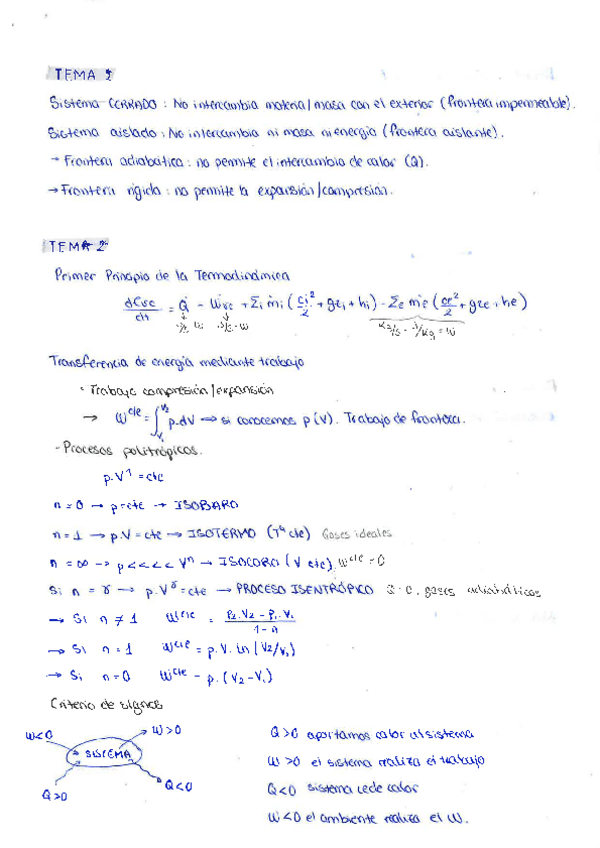 TEMA 1
Sistema CERRADO: No intercambia materia/masa con el exterior (frontera impermeable).
Sistema aislado: No intercambia ni masa ni energía (frontera aislante).
→ Frontera adiabática: no permite el intercambio de calor (Q).
→ Frontera rígida: no permite la expansión/compresión.
TEMA 2
Primer Principio de la Termodinámica
dEvc/dt = Q̇ - Ẇvc + Σi ṁi (ci²/2 + gzi + hi) - Σe ṁe (ce²/2 + gze + he)
J/s = W J/s = W Kg/s · J/Kg = W
Transferencia de energía mediante trabajo
· Trabajo compresión/expansión
→ W^c/e = ∫V1^V2 p.dV → si conocemos p(V). Trabajo de frontera.
- Procesos politrópicos.
p.V^n = cte
n = 0 → p = cte → ISOBARO
n = 1 → p.V = cte → ISOTERMO (Tª cte) Gases ideales
n = ∞ → p <<<< V^n → ISOCORO (V cte) W^c/e = 0
Si n = γ → p.V^γ = cte → PROCESO ISENTRÓPICO gases adiabáticos
→ Si n ≠ 1 W^c/e = (P2.V2 - P1.V1)/(1 - n)
→ Si n = 1 W^c/e = p.V. ln(V2/V1)
→ Si n = 0 W^c/e = p.(V2 - V1)
Criterio de signos
W<0 W>0
SISTEMA
Q>0 Q<0
Q>0 aportamos calor al sistema
W>0 el sistema realiza el trabajo
Q<0 sistema cede calor
W<0 el ambiente realiza el W.